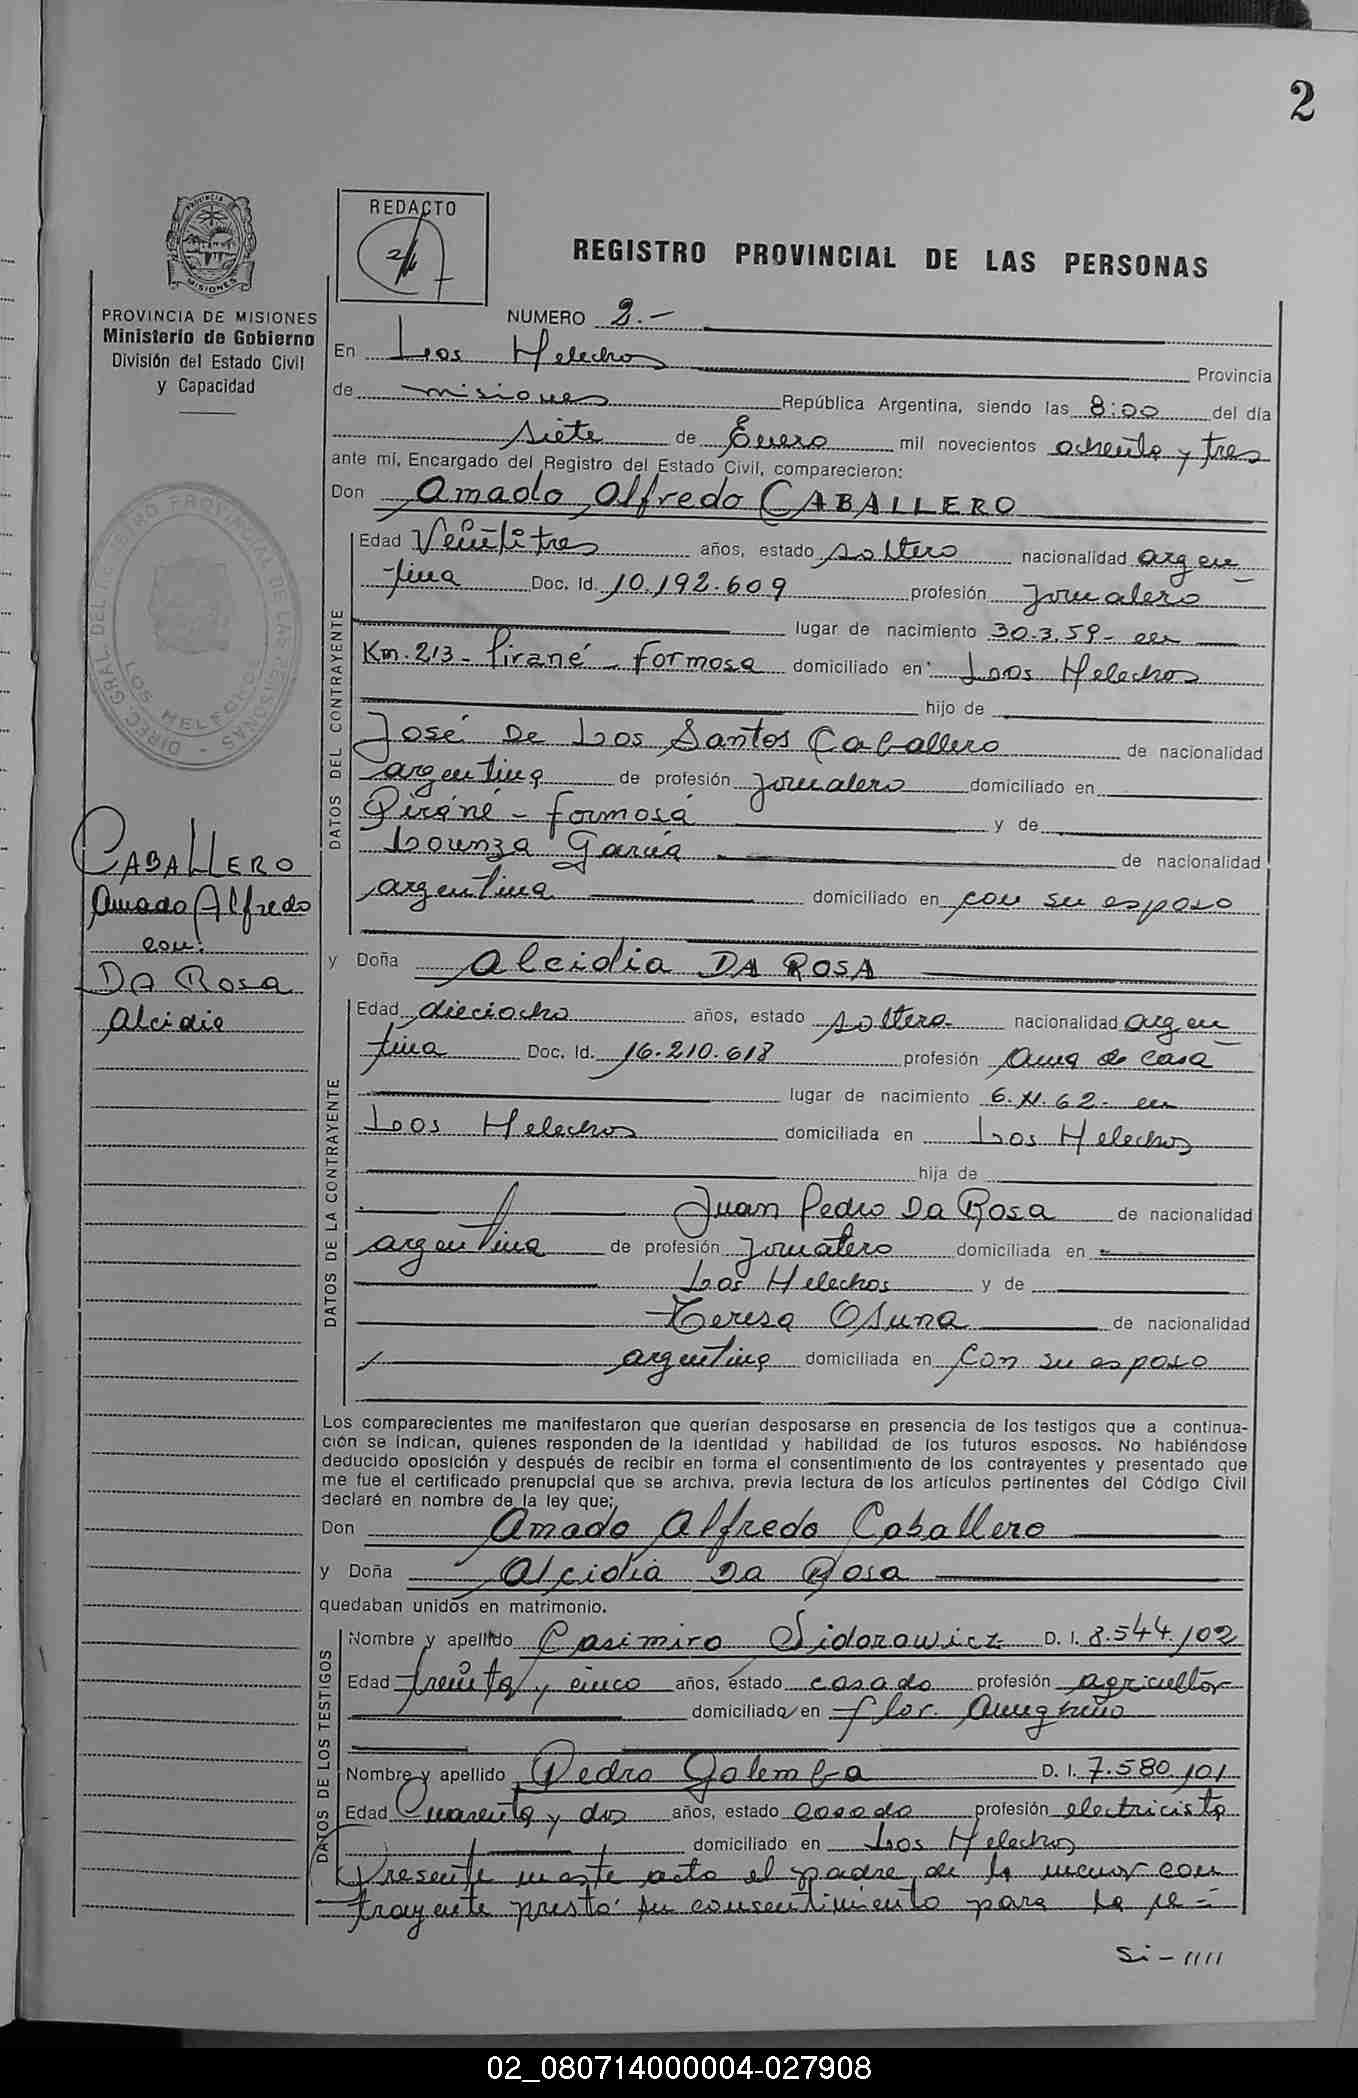 2
REDACTO
REGISTRO PROVINCIAL DE LAS PERSONAS
PROVINCIA DE MISIONES
Ministerio de Gobierno
División del Estado Civil
y Capacidad
NUMERO 2.-
En Los Helechos Provincia
de misiones República Argentina, siendo las 8:00 del día
siete de Enero mil novecientos ochenta y tres
ante mí, Encargado del Registro del Estado Civil, comparecieron:
Don Amado Alfredo CABALLERO
DATOS DEL CONTRAYENTE
Edad Veintitres años, estado soltero nacionalidad argen
tina Doc. Id. 10.192.609 profesión Jornalero
lugar de nacimiento 30.3.59- en
Km. 213- Pirané - Formosa domiciliado en: Los Helechos
hijo de
José De Los Santos Caballero de nacionalidad
argentina de profesión Jornalero domiciliado en
Pirané - Formosa y de
Lorenza García de nacionalidad
argentina domiciliado en con su esposo
CABALLERO
Amado Alfredo
con:
DA ROSA
Alcidia
y Doña Alcidia DA ROSA
DATOS DE LA CONTRAYENTE
Edad dieciocho años, estado soltera nacionalidad argen
tina Doc. Id. 16.210.618 profesión Ama de casa
lugar de nacimiento 6.XI.62- en
Los Helechos domiciliada en Los Helechos
hija de
Juan Pedro Da Rosa de nacionalidad
argentina de profesión Jornalero domiciliada en
Los Helechos y de
Teresa Osuna de nacionalidad
argentina domiciliada en Con su esposo
Los comparecientes me manifestaron que querían desposarse en presencia de los testigos que a continua-
ción se indican, quienes responden de la identidad y habilidad de los futuros esposos. No habiéndose
deducido oposición y después de recibir en forma el consentimiento de los contrayentes y presentado que
me fue el certificado prenupcial que se archiva, previa lectura de los artículos pertinentes del Código Civil
declaré en nombre de la ley que;
Don Amado Alfredo Caballero
y Doña Alcidia Da Rosa
quedaban unidos en matrimonio.
DATOS DE LOS TESTIGOS
Nombre y apellido Casimiro Sidorowicz D. I. 8.544.102
Edad treinta y cinco años, estado casado profesión agricultor
domiciliado en Flor. Ameghino
Nombre y apellido Pedro Golemba D. I. 7.580.101
Edad Cuarenta y dos años, estado casado profesión electricista
domiciliado en Los Helechos
Presente en este acto el padre de la menor con
trayente prestó su consentimiento para la ce=
Si-////
02_080714000004-027908